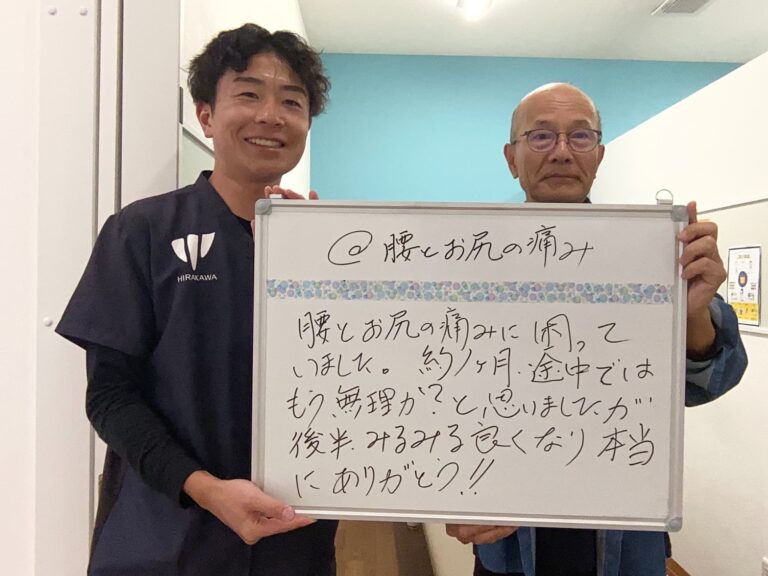 @ 腰とお尻の痛み
腰とお尻の痛みに困って
いました。約1ヶ月.途中では
もう無理か?と思いましたが
後半.みるみる良くなり本当
にありがとう!!
HIRAKAWA